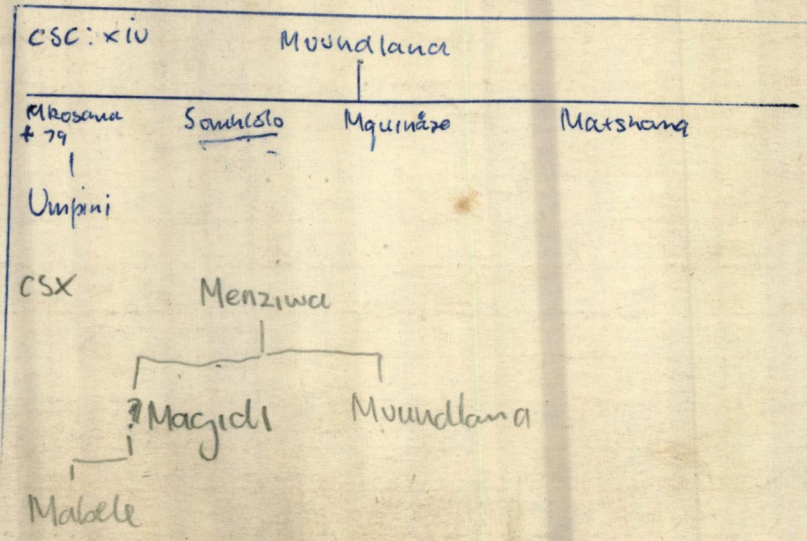 CSC: xiv Mvundlana
Mkosana Somhlolo Mquinaze Matshana
+ 79
Umpini
CSX Menziwa
? Magidi Mvundlana
Mabele